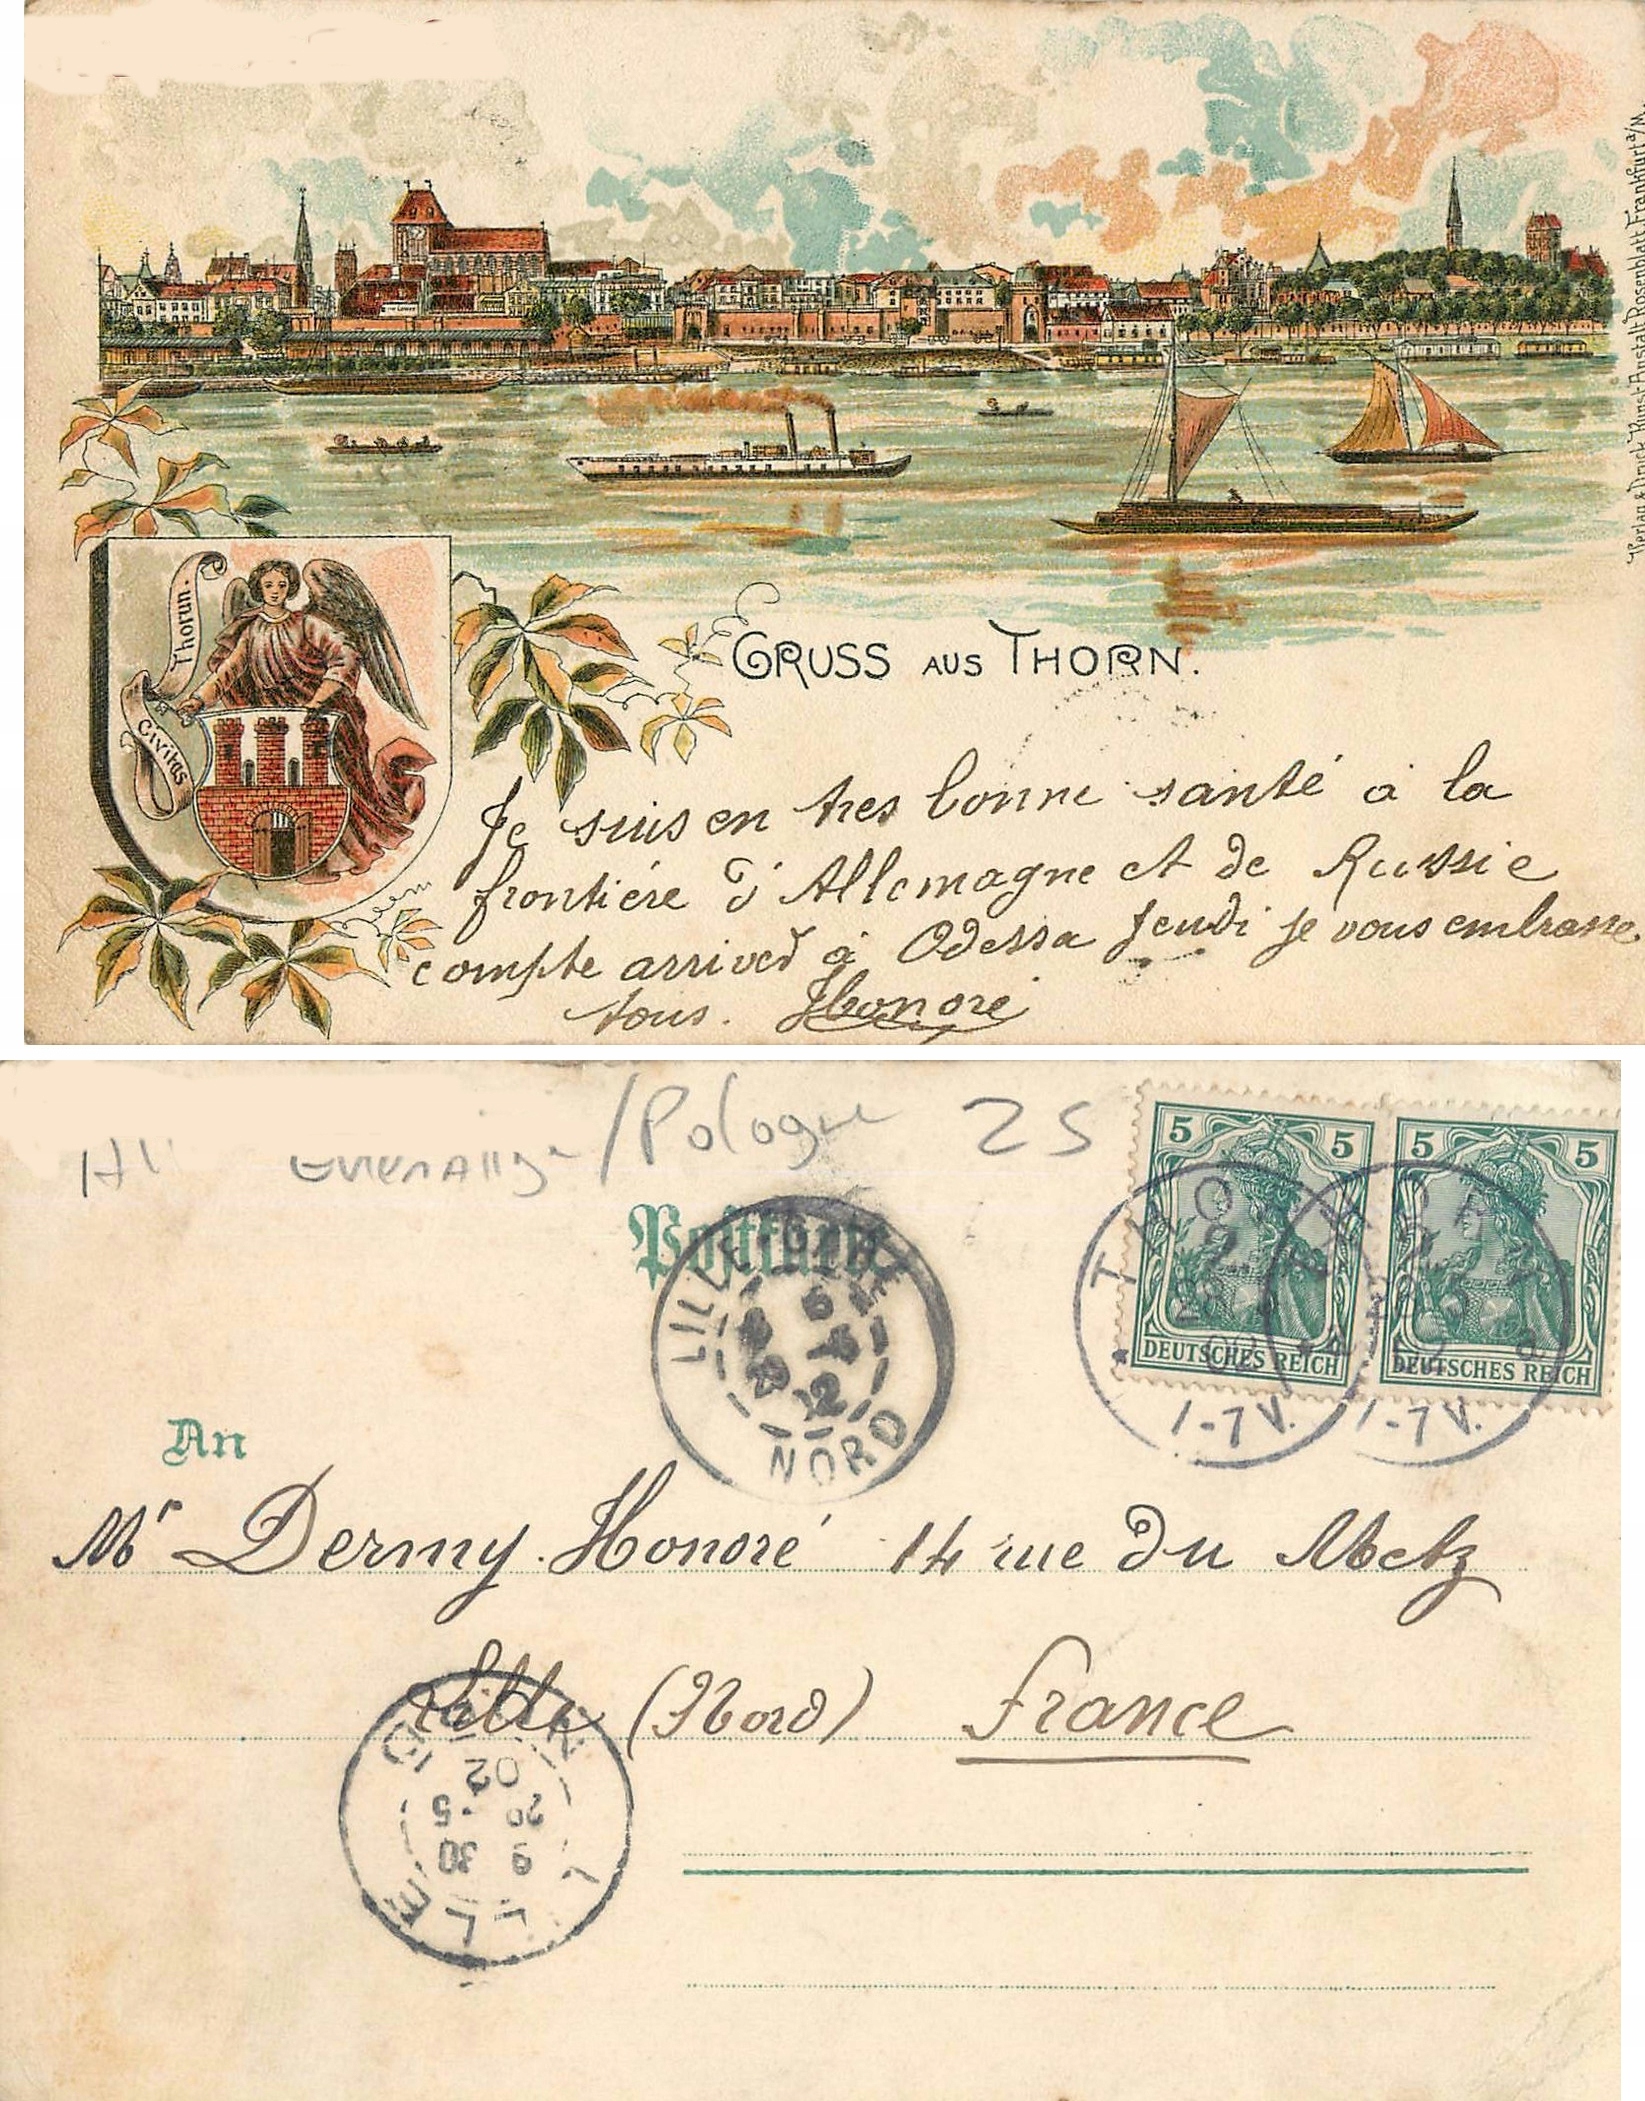 Verlag & Druck Kunst-Anstalt Rosenblatt Frankfurt a/M.
Thorun.
Civitas
GRUSS AUS THORN.
Je suis en tres bonne santé à la
frontiére d'Allemagne et de Russie
compte arrived à Odessa Jeudi je vous embrasse
tous. Honoré
/Pologne 25
5 5 5 5
DEUTSCHES REICH DEUTSCHES REICH
THORN
1-7 V. 1-7 V.
Postkarte
LILLE-GARE
NORD
An
Mr Dermy Honoré 14 rue du Metz
Lille (Nord) France
LILLE NORD
9 30
20 5
02